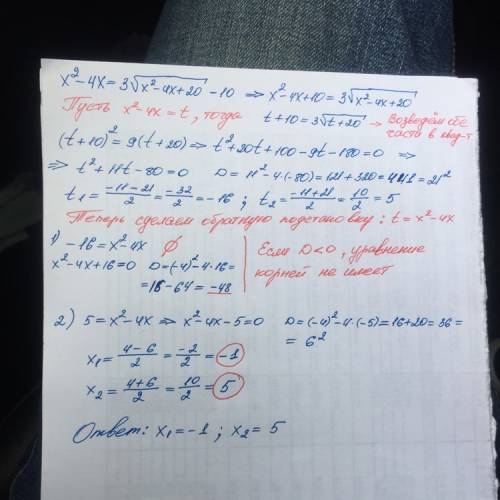 x²-4x=3√x²-4x+20 -10 ⇒ x²-4x+10=3√x²-4x+20
Пусть x²-4x=t, тогда t+10=3√t+20 → Возведём обе
части в квад-т
(t+10)²=9(t+20) ⇒ t²+20t+100-9t-180=0 ⇒
⇒ t²+11t-80=0 D=11²-4·(-80)=121+320=441=21²
t₁=(-11-21)/2=-32/2=-16; t₂=(-11+21)/2=10/2=5
Теперь сделаем обратную подстановку: t=x²-4x
1) -16=x²-4x ∅
x²-4x+16=0 D=(-4)²-4·16=
=16-64=-48
Если D<0, уравнение
корней не имеет
2) 5=x²-4x ⇒ x²-4x-5=0 D=(-4)²-4·(-5)=16+20=36=
=6²
x₁=(4-6)/2=-2/2=-1
x₂=(4+6)/2=10/2=5
Ответ: x₁=-1; x₂=5